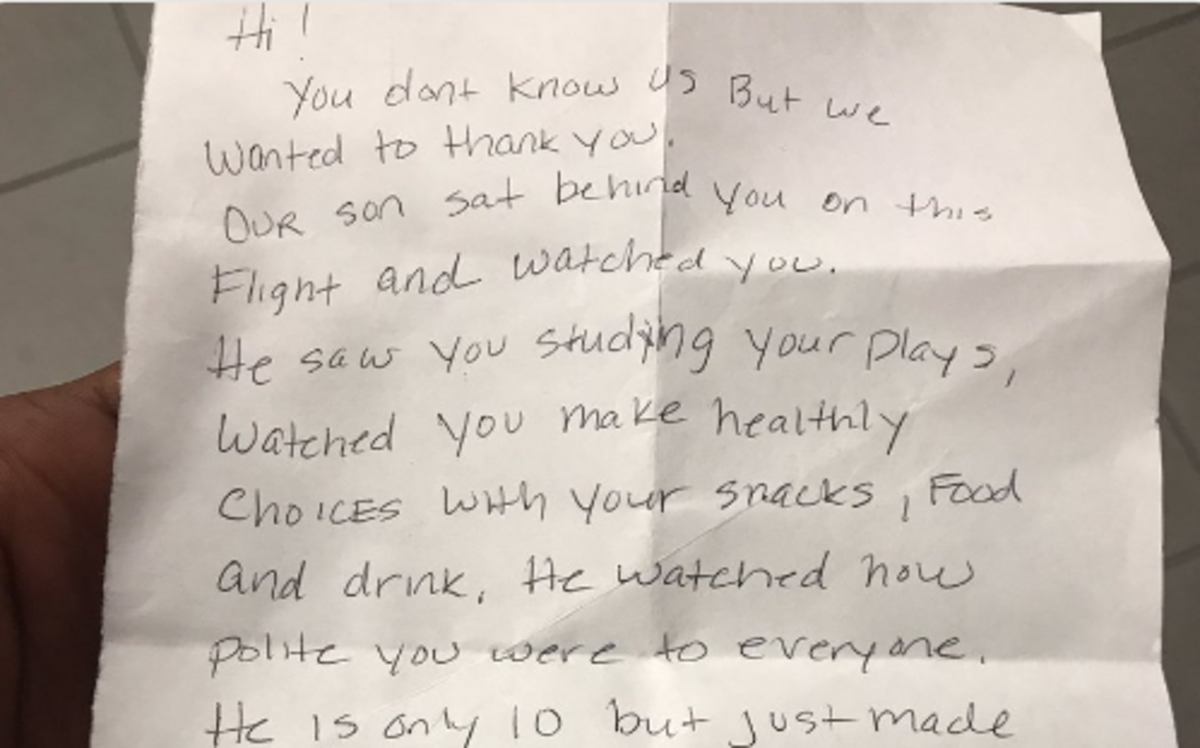 Hi!
You dont know us But we
Wanted to thank you.
OUR son sat behind you on this
Flight and watched you.
He saw you studying your plays,
Watched you make healthly
CHOICES With your snacks, Food
and drink. He watched how
polite you were to everyone.
He is only 10 but just made